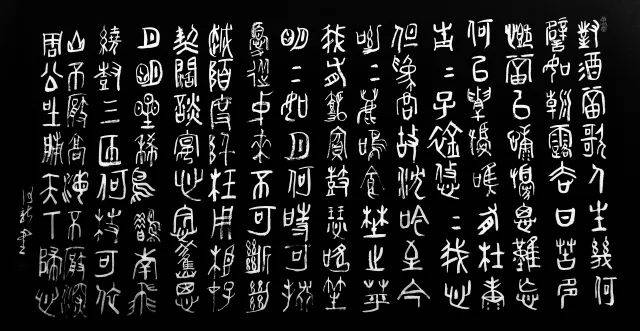 對酒當歌人生幾何
譬如朝露去日苦多
慨當以慷憂思難忘
何以解憂唯有杜康
青々子衿悠々我心
但為君故沈吟至今
呦々鹿鳴食野之苹
我有嘉賓鼓瑟吹笙
明々如月何時可掇
憂從中來不可斷絕
越陌度阡枉用相存
契闊談讌心念舊恩
月明星稀烏鵲南飛
繞樹三匝何枝可依
山不厭高海不厭深
周公吐哺天下歸心